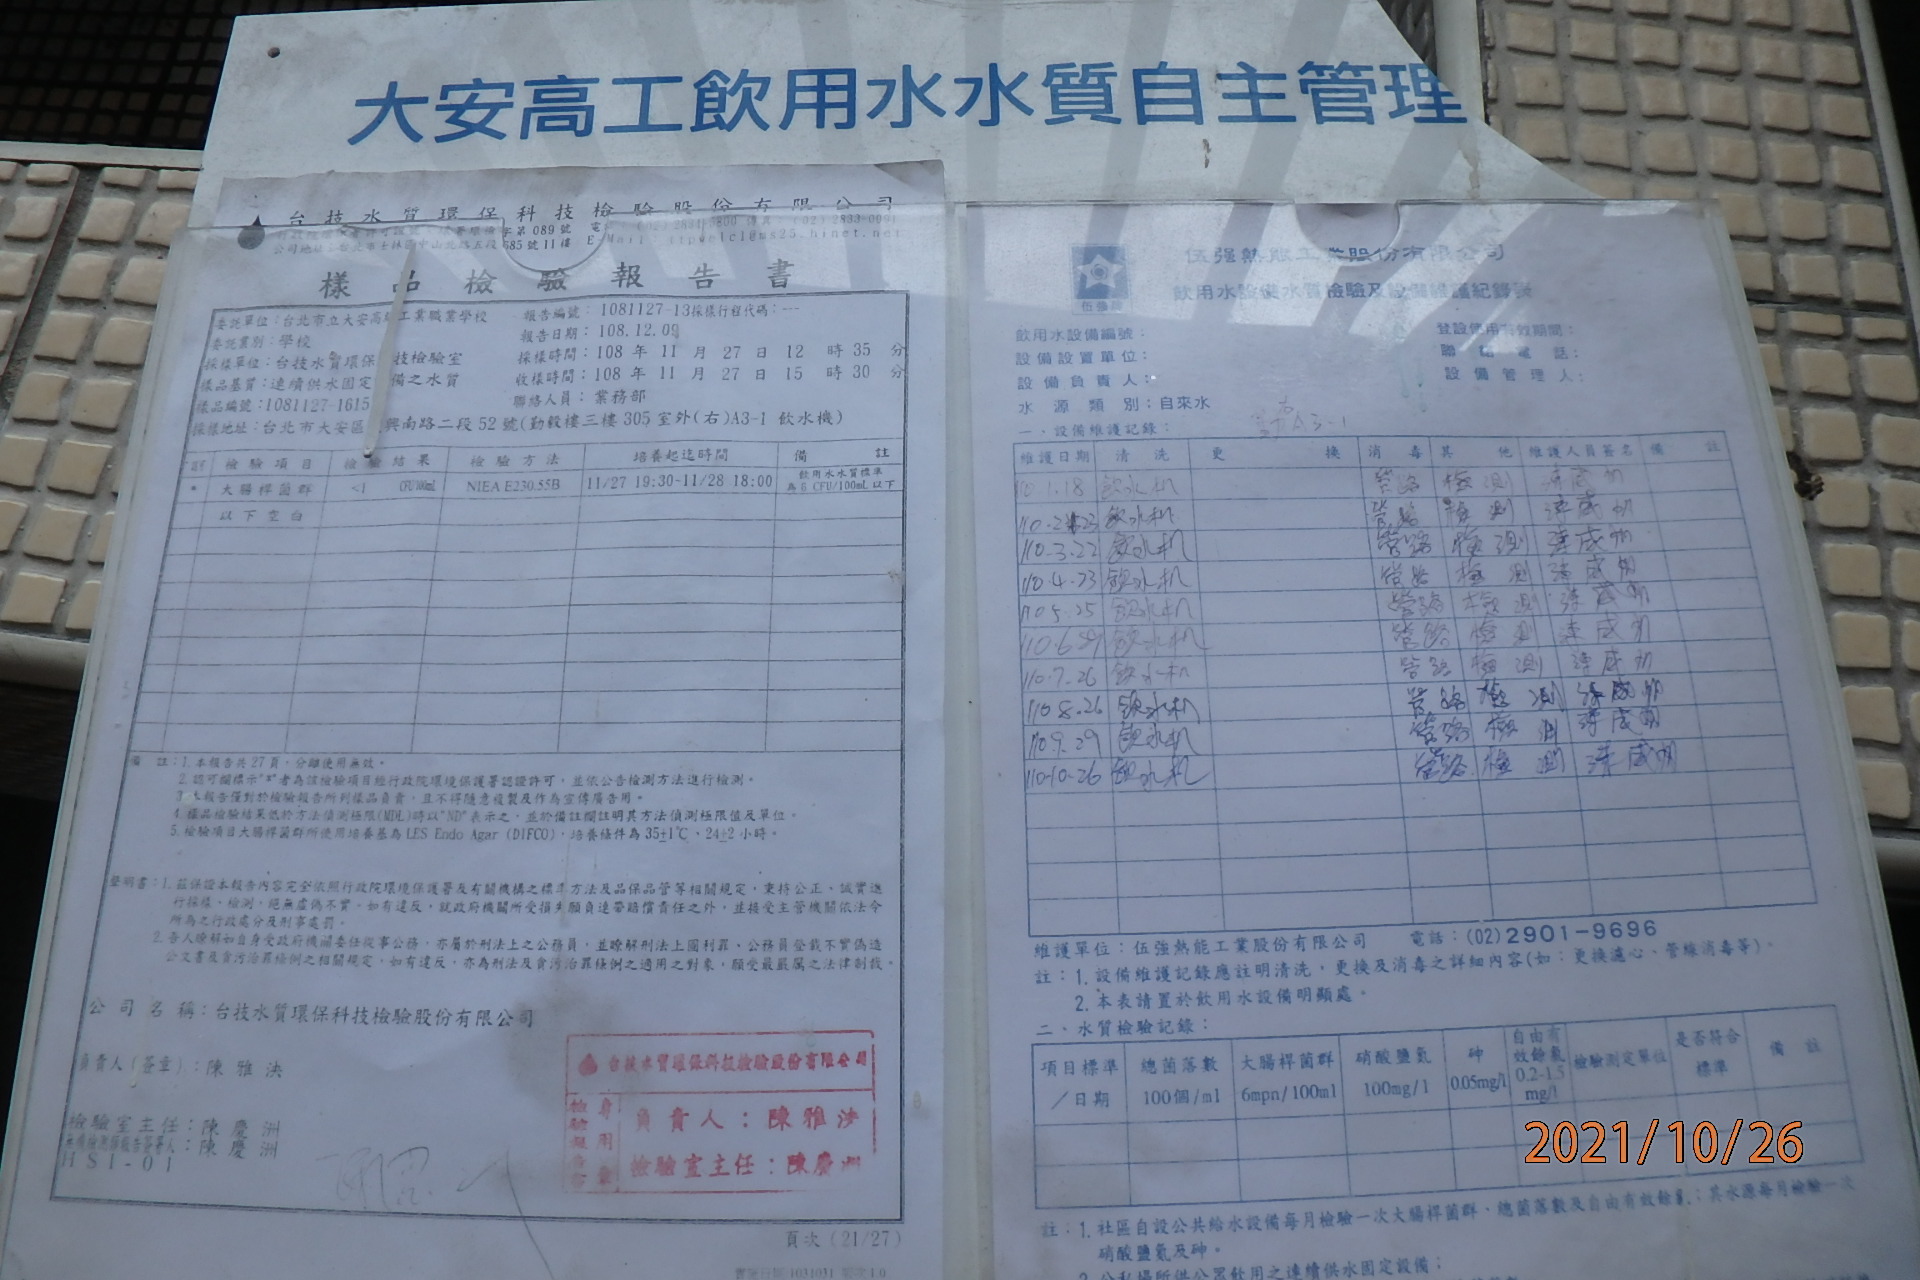 大安高工飲用水水質自主管理
台技水質環保科技檢驗股份有限公司
字第089號
585號11樓
樣品檢驗報告書
委託單位：台北市立大安高 工業職業學校
報告編號：1081127-13採樣行程代碼：---
委託業別：學校
報告日期：108.12.09
採樣單位：台技水質環保 技檢驗室
採樣時間：108 年 11 月 27 日 12 時 35 分
樣品基質：連續供水固定 備之水質
收樣時間：108 年 11 月 27 日 15 時 30 分
樣品編號：1081127-1615
聯絡人員：業務部
採樣地址：台北市大安區 興南路二段52號(勤毅樓三樓305室外(右)A3-1 飲水機)
檢驗項目 檢驗結果 檢驗方法 培養起迄時間 備註
* 大腸桿菌群 <1 CFU/100mL NIEA E230.55B 11/27 19:30-11/28 18:00 飲用水水質標準為 6 CFU/100mL 以下
以下空白
備 註：1.本報告共27頁，分離使用無效。
2.認可欄標示"*"者為該檢驗項目經行政院環境保護署認證許可，並依公告檢測方法進行檢測。
3.本報告僅對於檢驗報告所列樣品負責，且不得隨意複製及作為宣傳廣告用。
4.樣品檢驗結果低於方法偵測極限(MDL)時以"ND"表示之，並於備註欄註明其方法偵測極限值及單位。
5.檢驗項目大腸桿菌群所使用培養基為LES Endo Agar (DIFCO)，培養條件為35±1℃、24±2小時。
聲明書：1.茲保證本報告內容完全依照行政院環境保護署及有關機構之標準方法及品保品管等相關規定，秉持公正、誠實進
行採樣、檢測，絕無虛偽不實，如有違反，就政府機關所受損失願負連帶賠償責任之外，並接受主管機關依法令
所為之行政處分及刑事處罰。
2.吾人瞭解如自身受政府機關委任從事公務，亦屬於刑法上之公務員，並瞭解刑法上圖利罪、公務員登載不實偽造
公文書及貪污治罪條例之相關規定，如有違反，亦為刑法及貪污治罪條例之適用之對象，願受最嚴厲之法律制裁。
公司名稱：台技水質環保科技檢驗股份有限公司
負責人(簽章)：陳雅泱
檢驗室主任：陳慶洲
無機檢測類報告簽署人：陳慶洲
HSI-01
台技水質環保科技檢驗股份有限公司
檢驗報告專用章
負責人：陳雅泱
檢驗室主任：陳慶洲
頁次(21/27)
伍強熱能工業股份有限公司
飲用水設備水質檢驗及設備維護紀錄表
飲用水設備編號：
登設使用有效期間：
設備設置單位：
聯絡電話：
設備負責人：
設備管理人：
水源類別：自來水
A3-1
一、設備維護記錄：
維護日期 清洗 更換 消毒 其他 維護人員簽名 備註
110.1.18 飲水机 管路 檢測
110.2.23 飲水机 管路 檢測
110.3.22 飲水机 管路 檢測
110.4.23 飲水机 管路 檢測
110.5.25 飲水机 管路 檢測
110.6.29 飲水机 管路 檢測
110.7.26 飲水机 管路 檢測
110.8.26 飲水机 管路 檢測
110.9.29 飲水机 管路 檢測
110.10.26 飲水机 管路 檢測
維護單位：伍強熱能工業股份有限公司 電話：(02)2901-9696
註：1.設備維護記錄應註明清洗，更換及消毒之詳細內容(如：更換濾心、管線消毒等)。
2.本表請置於飲用水設備明顯處。
二、水質檢驗記錄：
項目標準／日期 總菌落數100個/ml 大腸桿菌群6mpn/100ml 硝酸鹽氮100mg/l 砷0.05mg/l 自由有效餘氯0.2-1.5mg/l 檢驗測定單位 是否符合標準 備註
註：1.社區自設公共給水設備每月檢驗一次大腸桿菌群、總菌落數及自由有效餘氯；其水源每月檢驗一次
硝酸鹽氮及砷。
2.公私場所供公眾飲用之連續供水固定設備：
2021/10/26